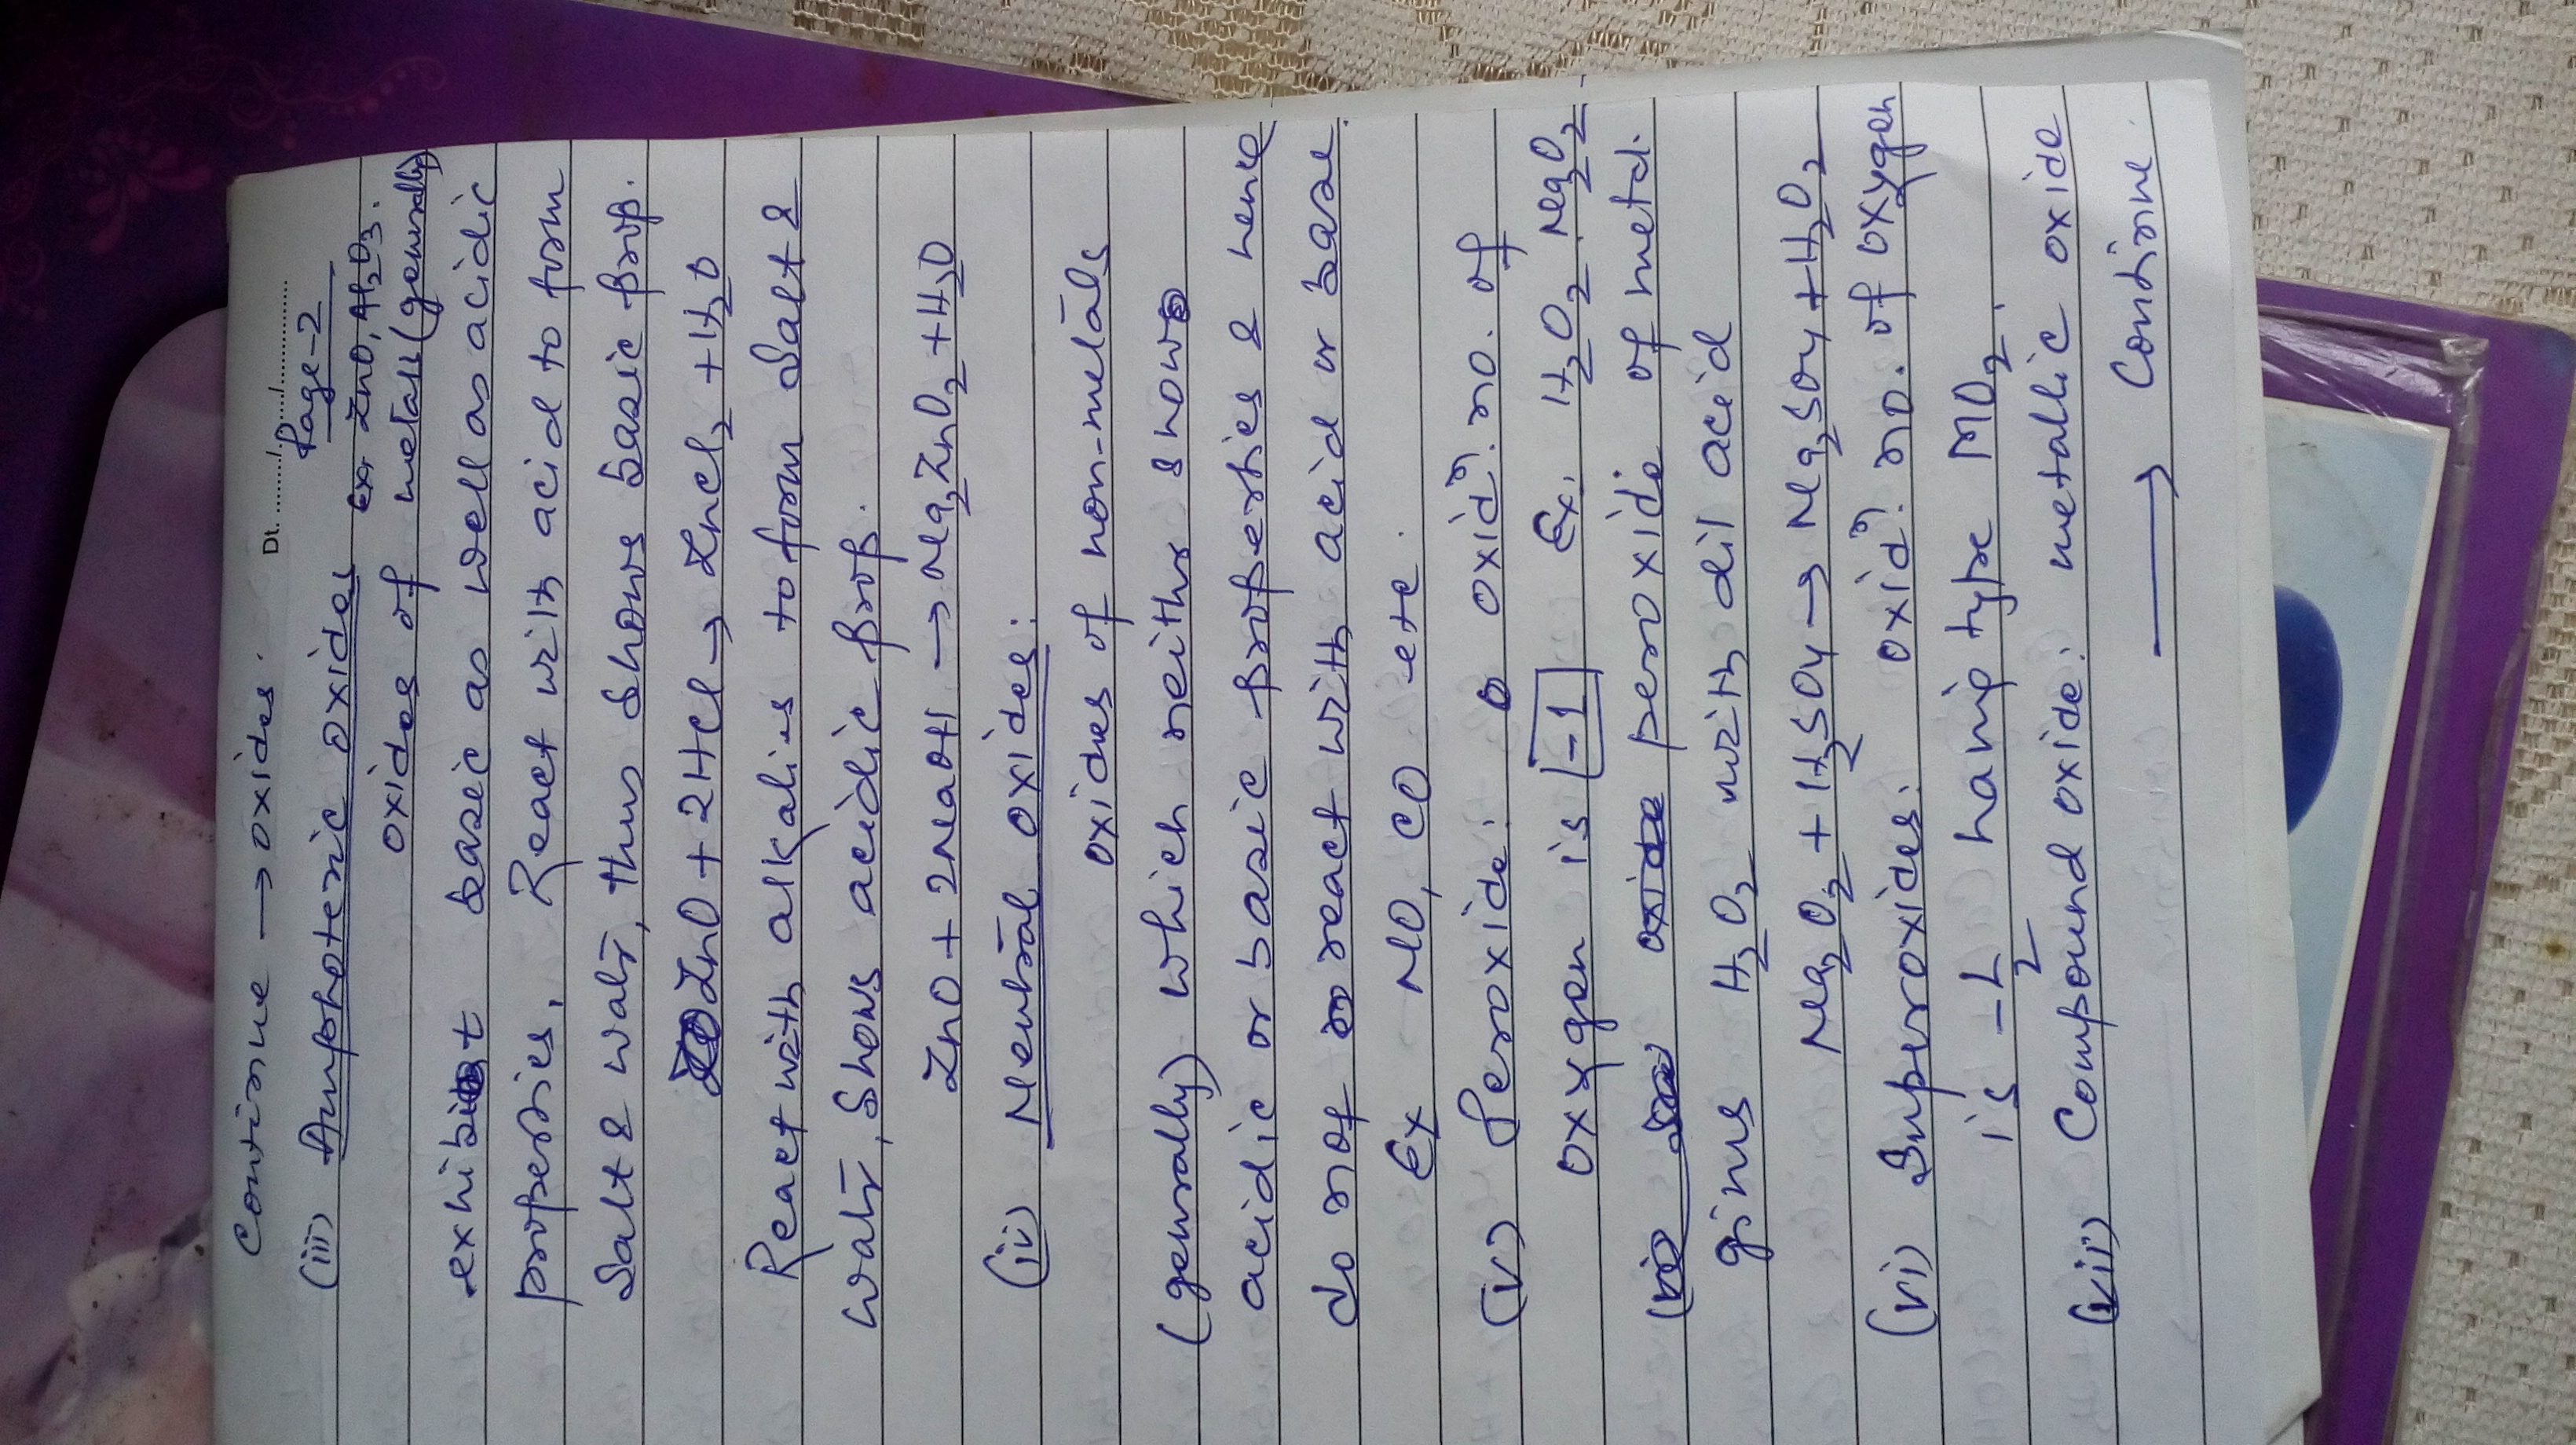 Dt. ......./......./............
Continue → oxides. Page-2
(iii) Amphoteric oxides ex. ZnO, Al2O3.
oxides of metals (generally)
exhibit basic as well as acidic
properies. React with acid to form
salt & water, thus shows basic prop.
ZnO + 2HCl → ZnCl2 + H2O
React with alkalies to form salt &
water, shows acidic prop.
ZnO + 2NaOH → Na2ZnO2 + H2O
(iv) Neutral oxides:
oxides of non-metals
(generally) which neither shows
acidic or basic properties & hence
do not react with acid or base.
Ex NO, CO etc.
(v) Peroxide: oxidn. no. of
oxygen is -1 Ex. H2O2. Na2O2
peroxide of metal.
gives H2O2 with dil acid
Na2O2 + H2SO4 → Na2SO4 + H2O2
(vi) Superoxides: oxidn. no. of oxygen
is -1/2 having type MO2.
(vii) Compound oxide: metallic oxide
→ Continue.